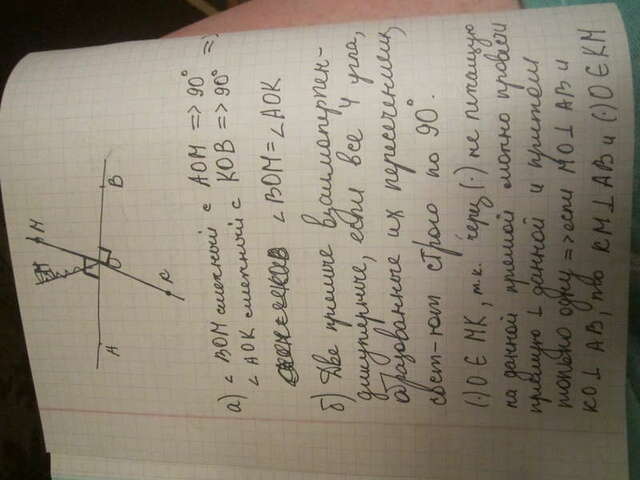 M
A
O
B
K
а) ∠ BOM смежный с AOM => 90°
∠ AOK смежный с KOB => 90° =>
∠BOM = ∠AOK
б) Две прямые взаимоперпен-
дикулярные, если все 4 угла,
образованные их пересечением,
сост-яют строго по 90°.
(·) O ∈ MK, т.к. через (·) не лежащую
на данной прямой можно провести
прямую ⊥ данной и притом
только одну => если MO ⊥ AB и
KO ⊥ AB, то KM ⊥ AB и (·) O ∈ KM